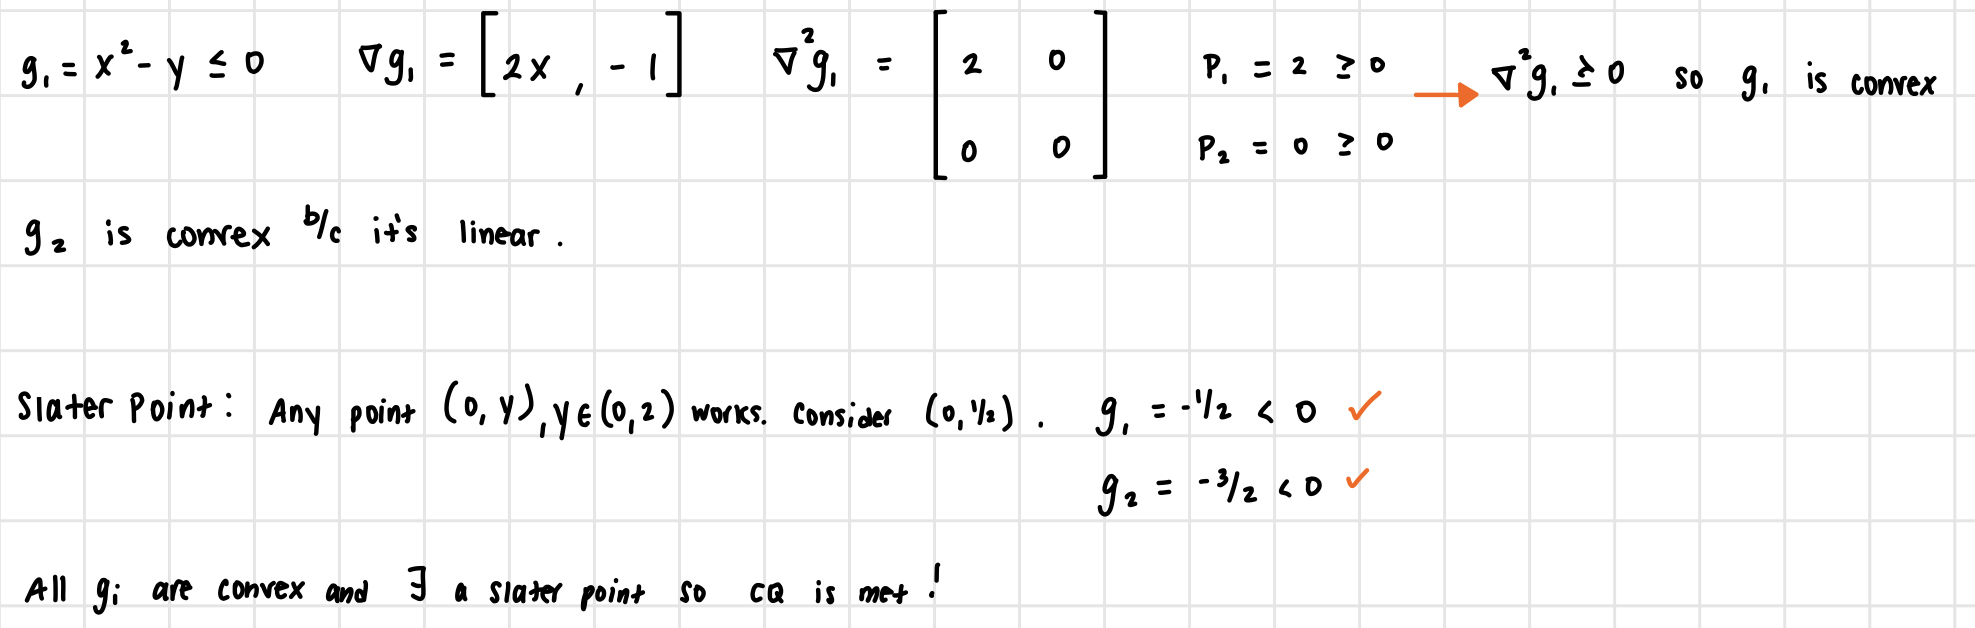 g₁ = x² - y ≤ 0 ∇g₁ = [2x , -1] ∇²g₁ = [2 0; 0 0] P₁ = 2 ≥ 0 → ∇²g₁ ≽ 0 so g₁ is convex
P₂ = 0 ≥ 0
g₂ is convex b/c it's linear.
Slater Point: Any point (0, y), y∈(0,2) works. Consider (0, 1/2). g₁ = -1/2 < 0 ✓
g₂ = -3/2 < 0 ✓
All gᵢ are convex and ∃ a slater point so CQ is met!